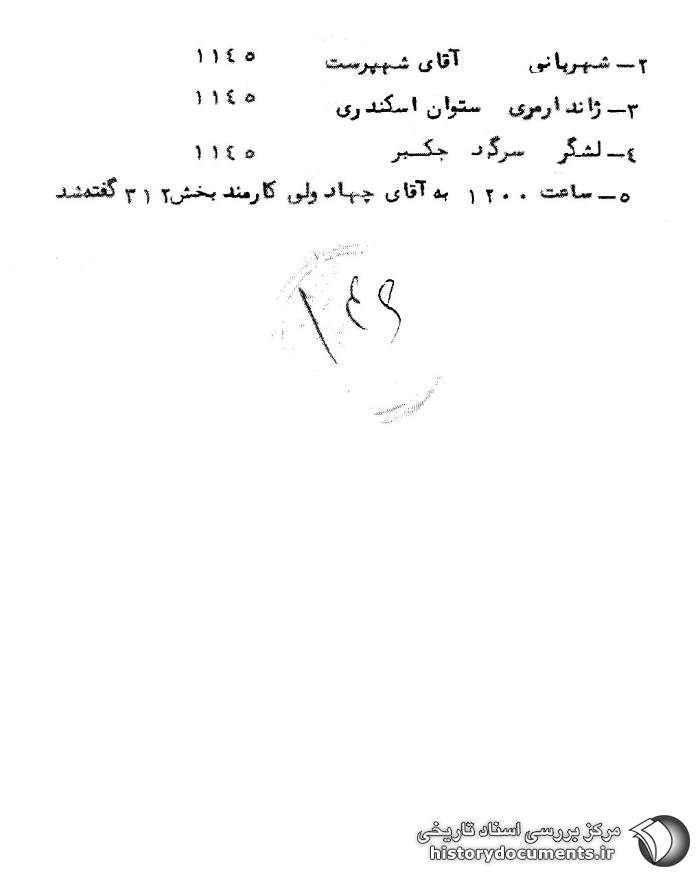 ۲ــ شهربانی آقای شهپرست ۱۱٤٥
۳ــ ژاندارمری ستوان اسکندری ۱۱٤٥
٤ــ لشگر سرگرد جکبر ۱۱٤٥
٥ــ ساعت ۱۲۰۰ به آقای چهاردولی کارمند بخش ۳۱۲ گفته شد
مرکز بررسی اسناد تاریخی
historydocuments.ir